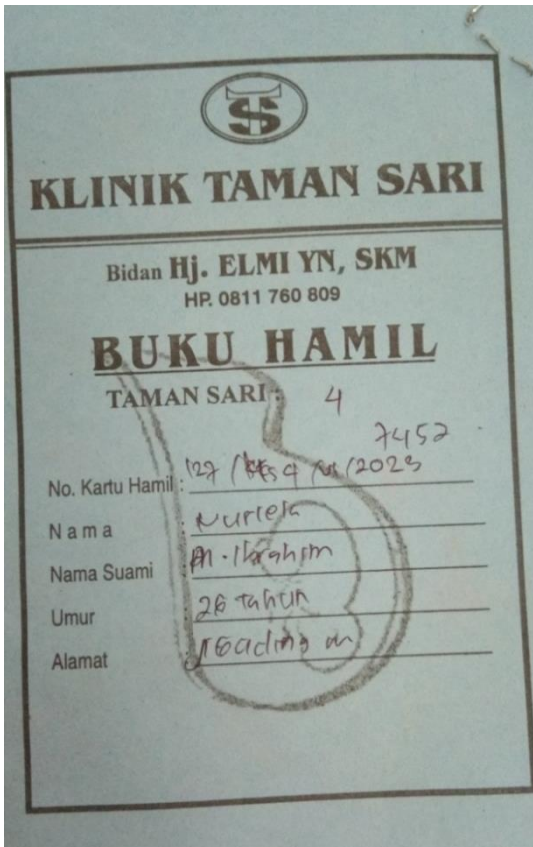 TS
KLINIK TAMAN SARI
Bidan Hj. ELMI YN, SKM
HP. 0811 760 809
BUKU HAMIL
TAMAN SARI : 4
7452
No. Kartu Hamil : 127 / /2023
Nama : Nurlela
Nama Suami : M. Ibrahim
Umur : 26 tahun
Alamat :